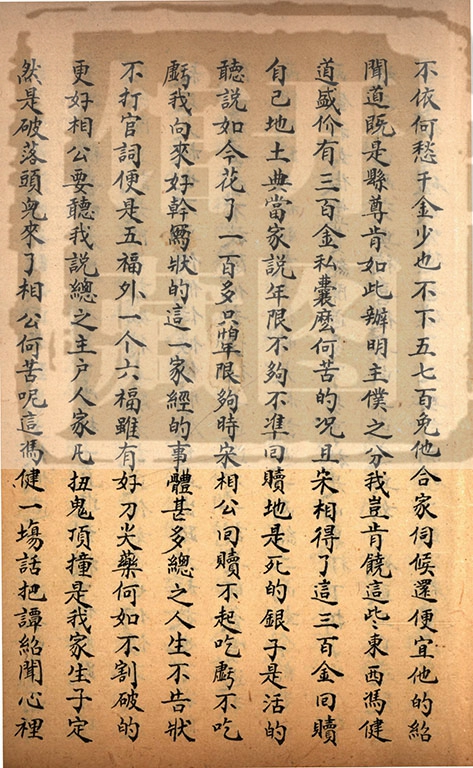 不依何愁千金少也不下五七百免他合家伺候還便宜他的紹
聞道既是縣尊肯如此辦明主僕之分我豈肯饒這些東西馮健
道盛价有三百金私囊麽何苦的况且宋相得了這三百金回贖
自己地土典當家說年限不夠不准回贖地是死的銀子是活的
聽說如今花了一百多只怕年限夠時宋相公回贖不起吃虧不吃
虧我向來好幹寫狀的這一家經的事體甚多總之人生不告狀
不打官詞便是五福外一个六福雖有好刀尖藥何如不割破的
更好相公要聽我說總之主户人家凡扭鬼頂撞是我家生子定
然是破落頭兒來了相公何苦呢這馮健一塲話把譚紹聞心裡